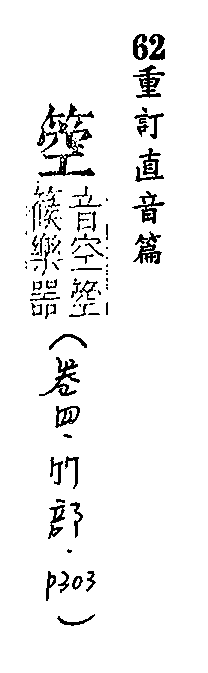 62重訂直音篇
箜
音空箜
篌樂器
(卷四．竹部．p303)